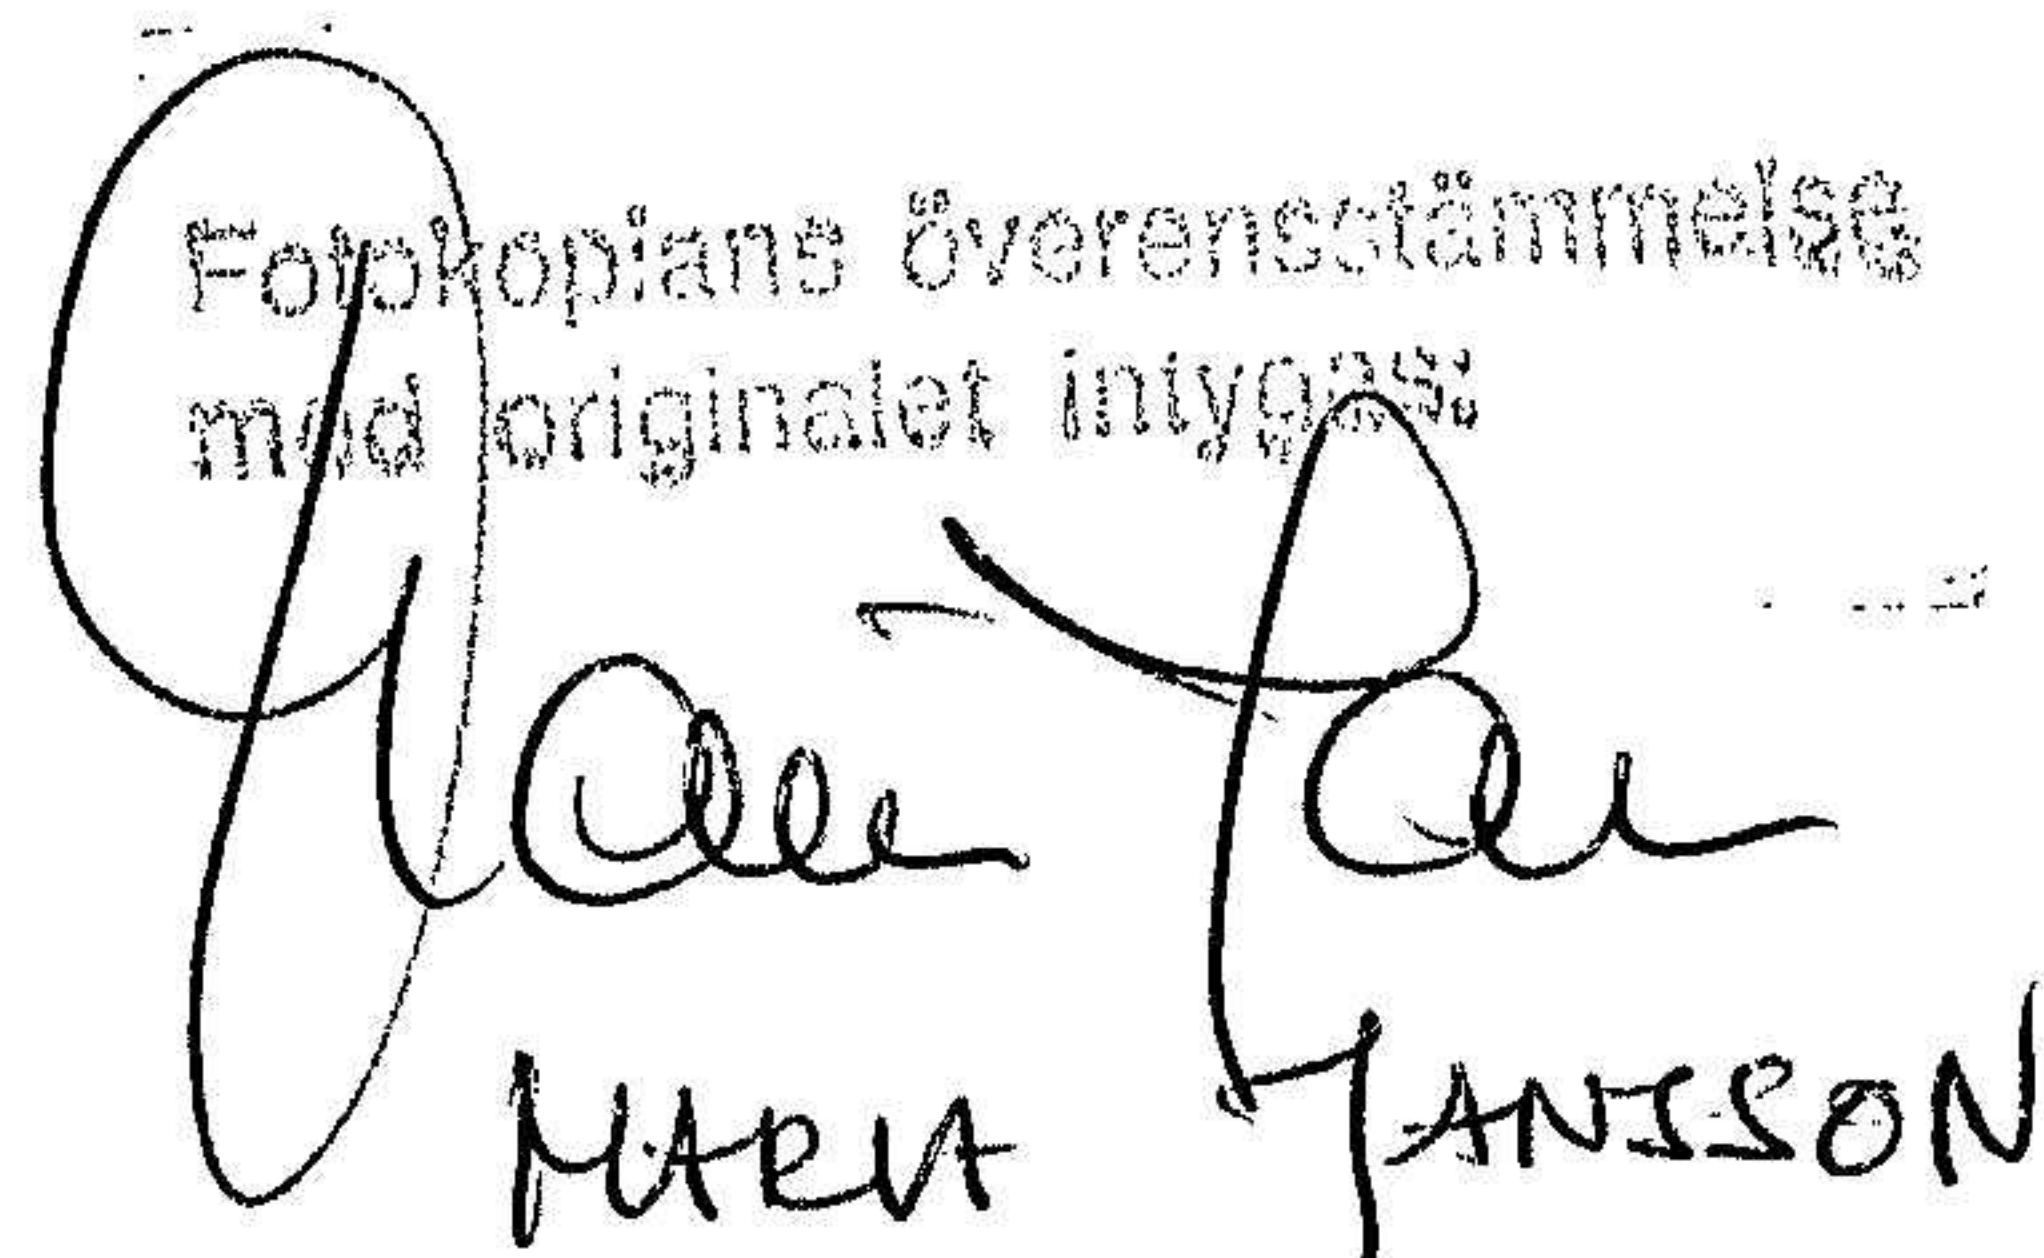 Fotokopians överensstämmelse
med originalet intygas:
MARIA JANSSON